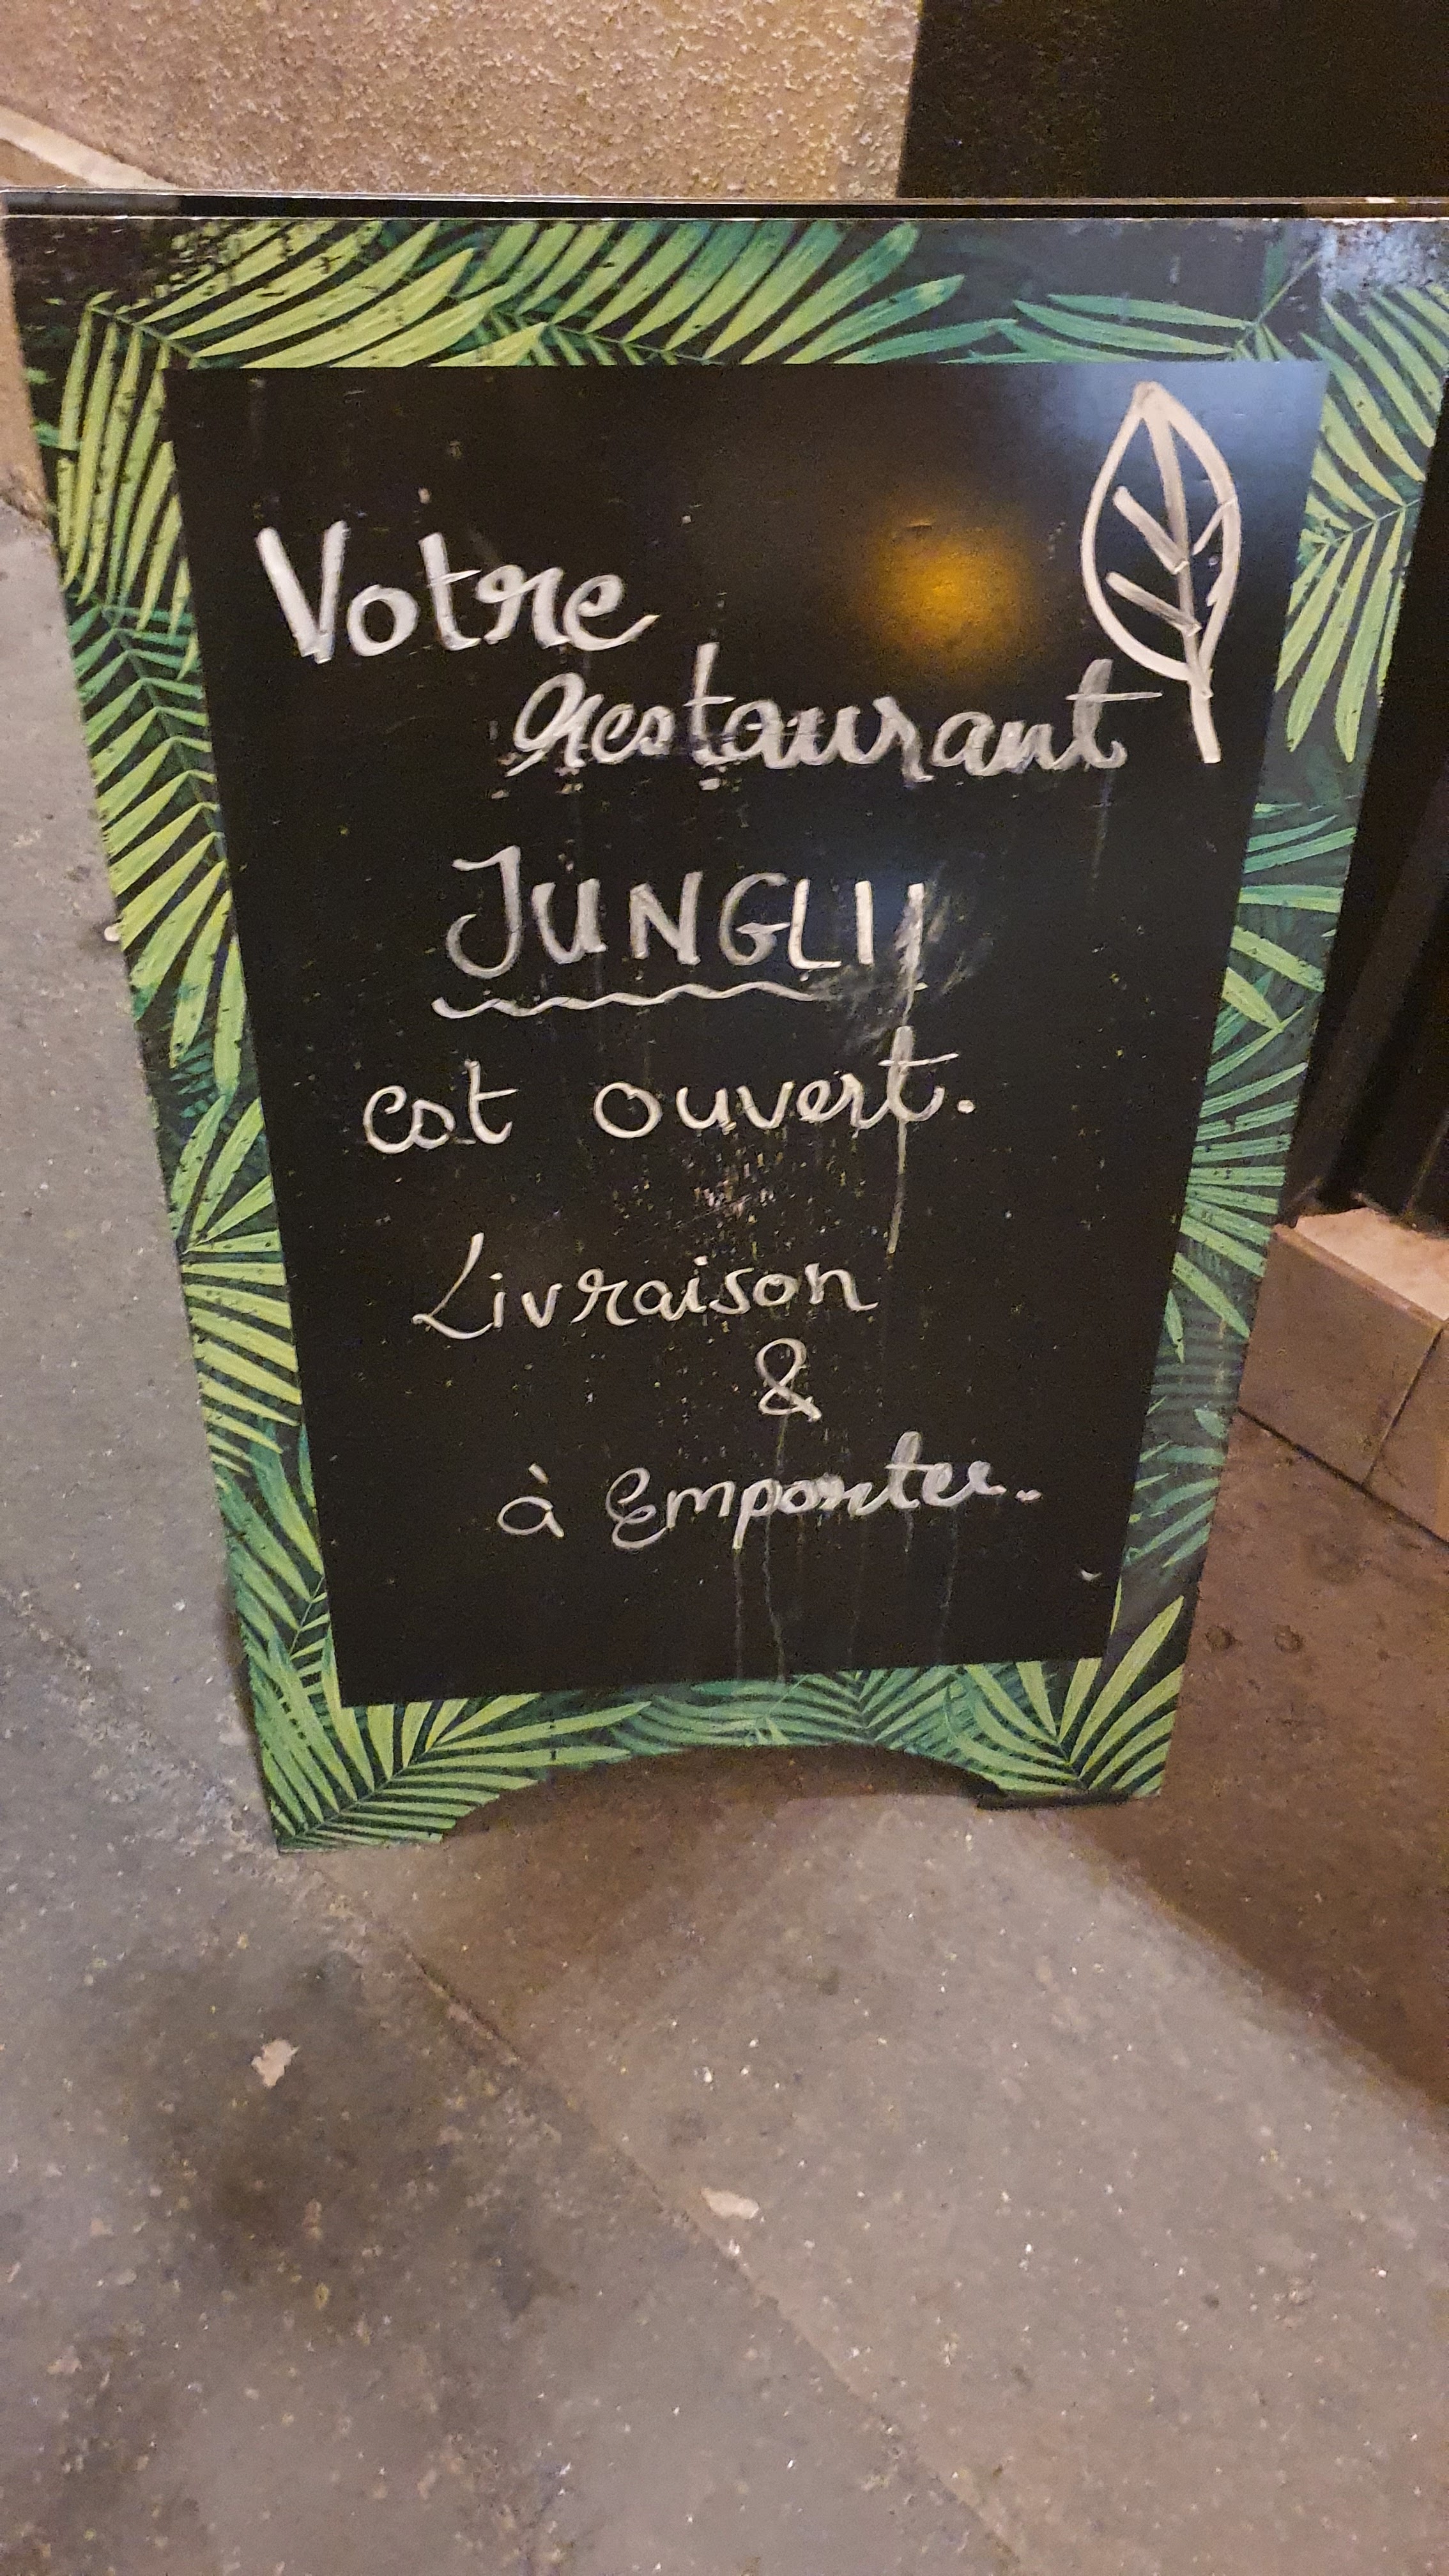 Votre
restaurant
JUNGLI
est ouvert.
Livraison
&
à Emporter.